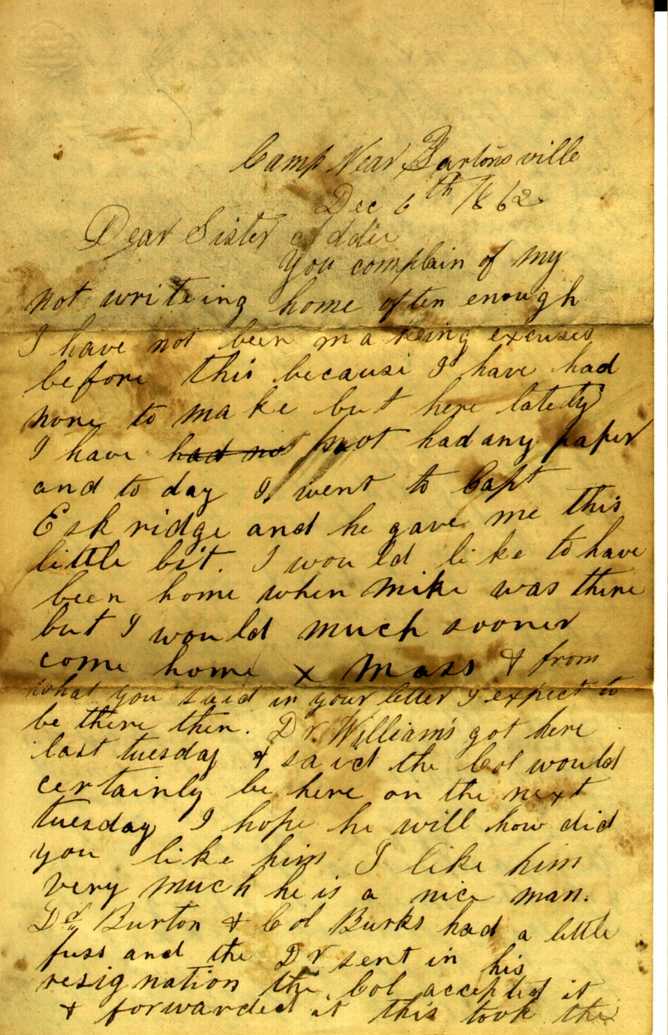 Camp Near Bartonsville
Dec 6th 1862
Dear Sister Addie
You complain of my
not writeing home often enough
I have not been makeing excuses
before this because I have had
none to make but here lately
I have had not not had any paper
and to day I went to Capt
Eskridge and he gave me this
little bit. I would like to have
been home when Mike was there
but I would much sooner
come home x mass & from
what you said in your letter I expect to
be there then. Dr. William's got here
last tuesday & said the Col would
certainly be here on the next
tuesday I hope he will how did
you like him I like him
very much he is a nice man.
Dr Burton & Col Burks had a little
fuss and the Dr sent in his
resignation the Col accepted it
& forwarded it this took the